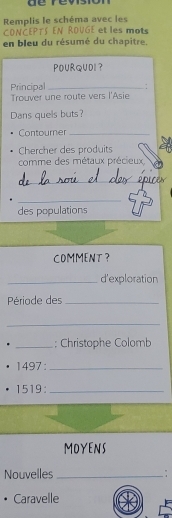 de révision
Remplis le schéma avec les
CONCEPTS EN ROUGE et les mots
en bleu du résumé du chapitre.
POURQUOI ?
Principal ____________ :
Trouver une route vers l'Asie
Dans quels buts ?
• Contourner ____________
• Chercher des produits
comme des métaux précieux,
de la soie et des épices
• ____________
des populations
COMMENT ?
____________ d'exploration
Période des ____________
____________
• ______ : Christophe Colomb
• 1497 : ____________
• 1519 : ____________
MOYENS
Nouvelles ____________ :
• Caravelle